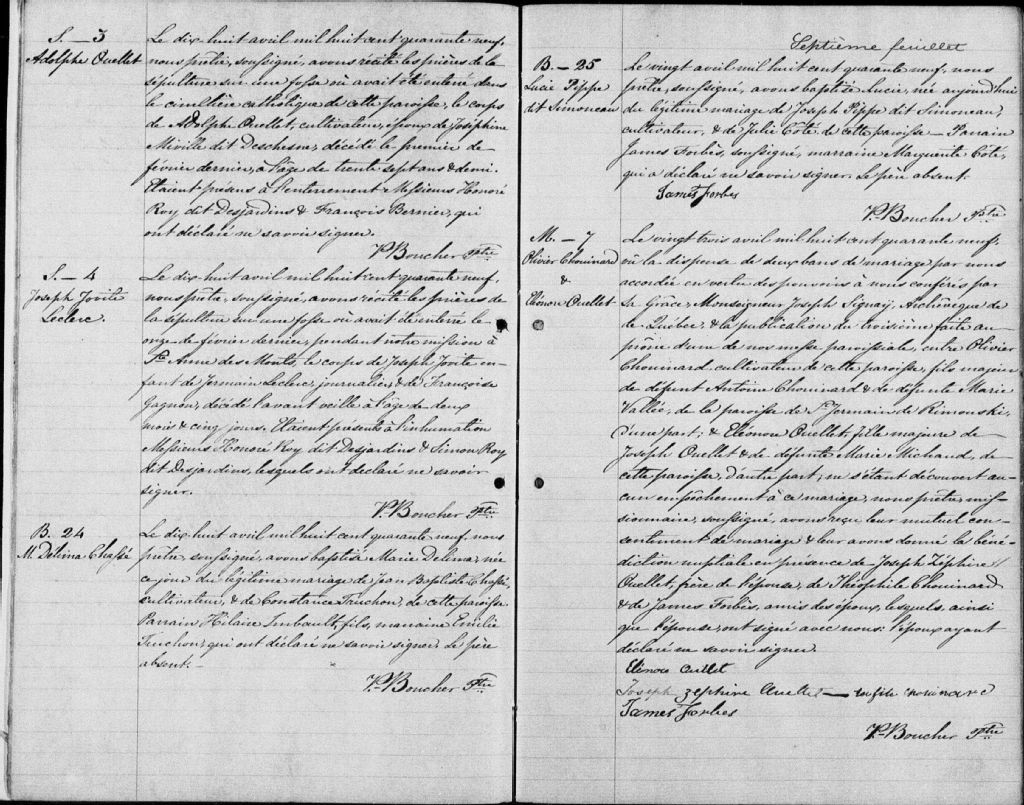 S. — 3
Adolphe Ouellet
Le dix huit avril mil huit cent quarante neuf,
nous prêtre, soussigné, avons récité les prières de la
sépulture sur une fosse où avait été enterré dans
le cimetière catholique de cette paroisse, le corps
de Adolphe Ouellet, cultivateur, époux de Joséphine
Miville dit Deschesne, décédé le premier de
février dernier, à l'âge de trente sept ans & demi.
Etaient présens à l'enterrement Messieurs Honoré
Roy dit Desjardins & François Bernier, qui
ont déclaré ne savoir signer.
V. Boucher Ptre
S. — 4
Joseph Jovite
Leclerc.
Le dix huit avril mil huit cent quarante neuf,
nous prêtre, soussigné, avons récité les prières de
la sépulture sur une fosse où avait été enterré le
onze de février dernier, pendant notre mission à
Ste Anne des Monts, le corps de Joseph Jovite en-
fant de Germain Leclerc, journalier, & de Françoise
Gagnon, décédé l'avant veille à l'âge de deux
mois & cinq jours. Etaient présents à l'inhumation
Messieurs Honoré Roy dit Desjardins & Simon Roy
dit Desjardins, lesquels ont déclaré ne savoir
signer.
V. Boucher Ptre
B. 24
M. Delima Chassé
Le dix huit avril mil huit cent quarante neuf, nous
prêtre, soussigné, avons baptisé Marie Delima, née
ce jour du légitime mariage de Jean Baptiste Chassé,
cultivateur, & de Constance Truchon, de cette paroisse
Parrain Hilaire Imbault, fils, marraine Emilie
Truchon, qui ont déclaré ne savoir signer. Le père
absent. —
V. Boucher Ptre
Septième feuillet
B. — 25
Lucie Pippe
dit Simoneau
Le vingt avril mil huit cent quarante neuf, nous
prêtre, soussigné, avons baptisé Lucie, née aujourd'hui
du légitime mariage de Joseph Pippe dit Simoneau,
cultivateur, & de Julie Côté de cette paroisse — Parrain
James Forbès, soussigné, marraine Marguerite Côté,
qui a déclaré ne savoir signer. Le père absent.
James Forbes
V. Boucher Ptre
M. — 7
Olivier Chouinard
&
Eléonore Ouellet
Le vingt trois avril mil huit cent quarante neuf,
vû la dispense de deux bans de mariage par nous
accordée en vertu des pouvoirs à nous conférés par
Sa Grâce Monseigneur Joseph Signay, Archevêque de
de Québec, & la publication du troisième faite au
prône d'une de nos messe paroissiale, entre Olivier
Chouinard cultivateur de cette paroisse, fils majeur
de défunt Antoine Chouinard & de défunte Marie
Vallée, de la paroisse de St Germain de Rimouski,
d'une part; & Eléonore Ouellet, fille majeure de
Joseph Ouellet & de défunte Marie Michaud, de
cette paroisse, d'autre part; ne s'étant découvert au-
cun empêchement à ce mariage, nous prêtre, mis-
sionnaire, soussigné, avons reçu leur mutuel con-
sentement de mariage & leur avons donné la béné-
diction nuptiale en présence de Joseph Zéphire
Ouellet, frère de l'épouse, de Théophile Chouinard
& de James Forbès, amis des époux, lesquels, ainsi
que l'épouse, ont signé avec nous. L'époux ayant
déclaré ne savoir signer.
Elenore Ouellet
Joseph zephire Ouellet —
James Forbes
V. Boucher Ptre